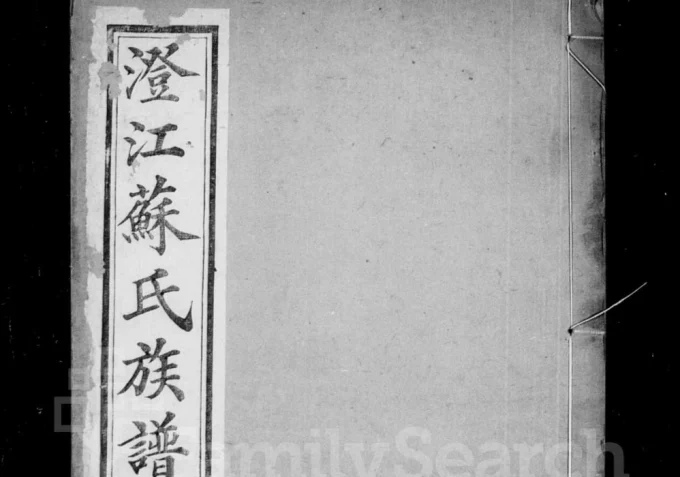 澄江蘇氏族譜
FamilySearch